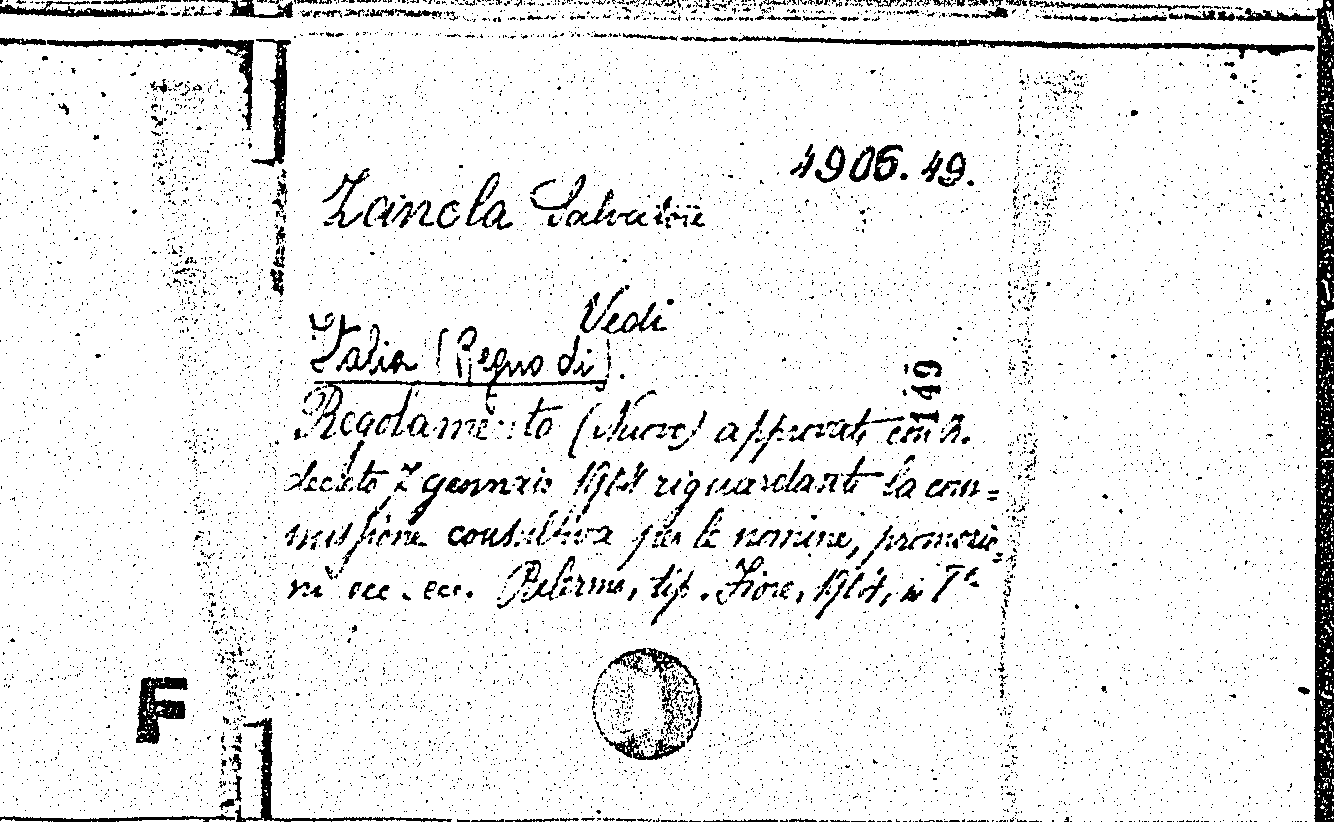 4905. 49.
Zanola Salvatore
Vedi
Italia (Regno di).
149
Regolamento (Nuovo) approvato con R.
decreto 7 gennaio 1904 riguardante la com=
missione consultiva per le nomine, promozio=
ni ecc. ecc. Palermo, tip. Fiore, 1904, in
F